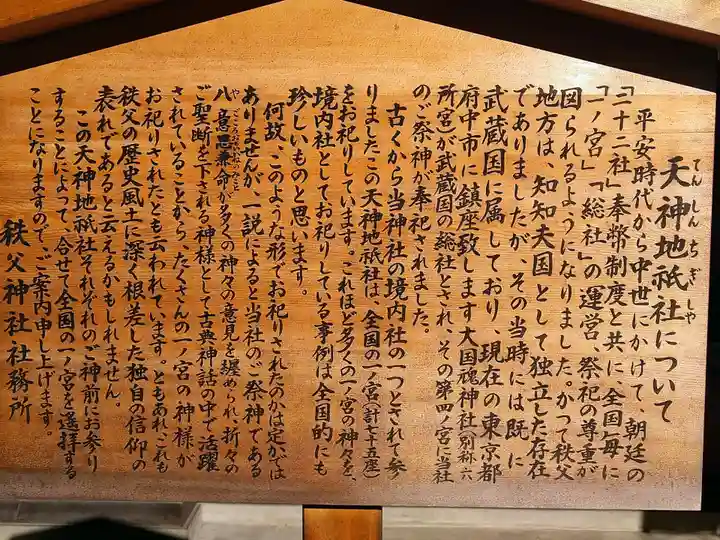 天神地祇社について
てんしんちぎしや
平安時代から中世にかけて、朝廷の
「二十二社」奉幣制度と共に、全国毎に
「一ノ宮」「総社」の運営、祭祀の尊重が
図られるようになりました。かつて秩父
地方は、知知夫国として独立した存在
でありましたが、その当時には既に
武蔵国に属しており、現在の東京都
府中市に鎮座致します大国魂神社(別称・六
所宮)が武蔵国の総社とされ、その第四ノ宮に当社
のご祭神が奉祀されました。
古くから当神社の境内社の一つとされて参
りましたこの天神地祇社は、全国の一ノ宮(計七十五座)
をお祀りしています。これほど多くの一ノ宮の神々を、
境内社としてお祀りしている事例は全国的にも
珍しいものと思います。
何故、このような形でお祀りされたのかは定かでは
ありませんが、一説によると当社のご祭神である
八意思兼命が多くの神々の意見を纏められ、折々の
やごころおもいかねのみこと
ご聖断を下される神様として古典神話の中で活躍
されていることから、たくさんの一ノ宮の神様が
お祀りされたとも云われています。ともあれ、これも
秩父の歴史風土に深く根差した独自の信仰の
表れであると云えるかもしれません。
この天神地祇社それぞれのご神前にお参り
することによって、合せて全国の一ノ宮を遥拝する
ことになりますので、ご案内申し上げます。
秩父神社社務所